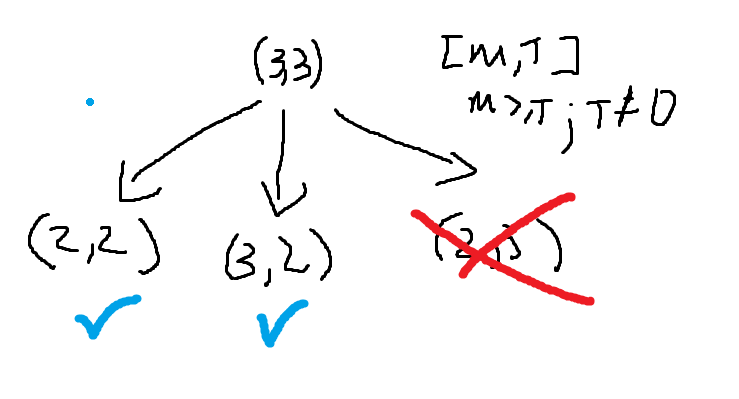 (3,3)
[m,T]
m>,T ; T≠0
(2,2)
(3,2)
(2,3)